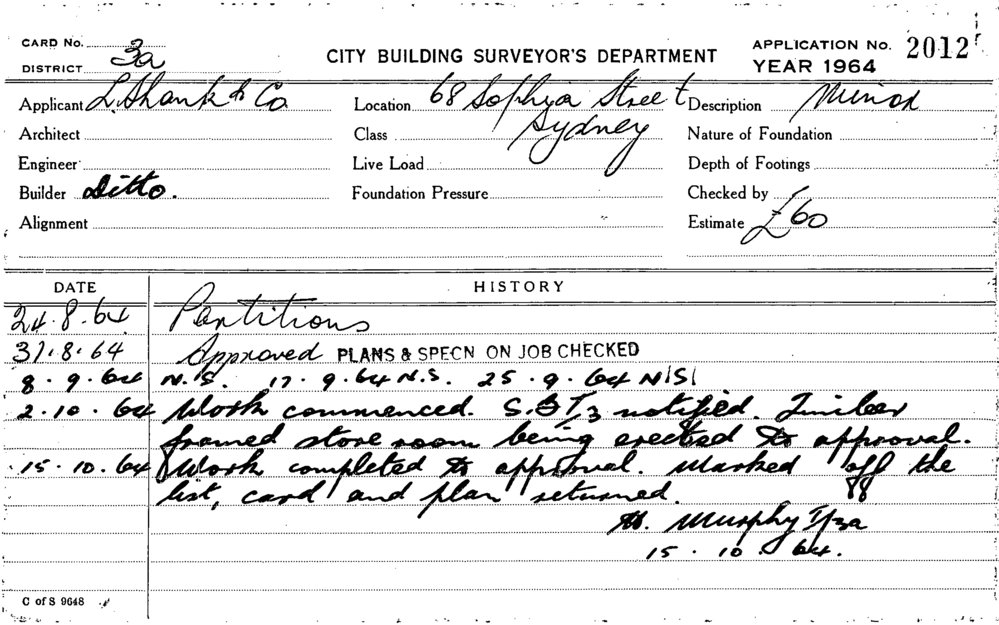 CARD No.
DISTRICT 3a
CITY BUILDING SURVEYOR'S DEPARTMENT
APPLICATION No. 2012
YEAR 1964
Applicant L. Shank & Co Location 68 Sophia Street Description Minor
Architect Class Sydney Nature of Foundation
Engineer Live Load Depth of Footings
Builder Ditto. Foundation Pressure Checked by
Alignment Estimate £60
DATE HISTORY
24.8.64 Partitions
31.8.64 Approved PLANS & SPECN ON JOB CHECKED
8.9.64 N.S. 17.9.64 N.S. 25.9.64 N/S/
2.10.64 Work commenced. notified. Timber
framed store room being erected to approval.
15.10.64 Work completed to approval. Marked off the
list, card and plan returned.
Murphy 3a
15.10.64.
C of S 9648